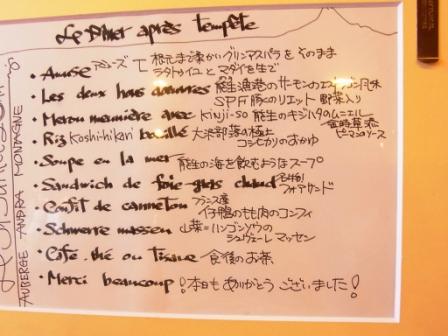 Le Dîner après tempête
• Amuse アミューズ 根元まで柔かいグリーンアスパラをそのまま
ラタトゥイユとマダイを生で
• Les deux hors d'œuvres 能生漁港のサーモンのエストラゴン風味
SPF豚のリエット 野菜入り
• Merou meunière avec Kinji-so 能生のキジハタのムニエル
金時草添 ピーマンのソース
• Riz Koshi-hikari bouillé 大沢部落の極上
コシヒカリのおかゆ
• Soupe en la mer 能生の海を飲むようなスープ
• Sandwich de foie-gras chaud 名物!! フォアサンド
• Confit de canneton フランス産
仔鴨のもも肉のコンフィ
• Schwerre massen 山菜=ハンゴンソウの
シュヴェーレ マッセン
• Cafe thé ou tisane 食後のお茶
• Merci beaucoup! 本日もありがとうございました!
AUBERGE ANDRA MONTAGNE